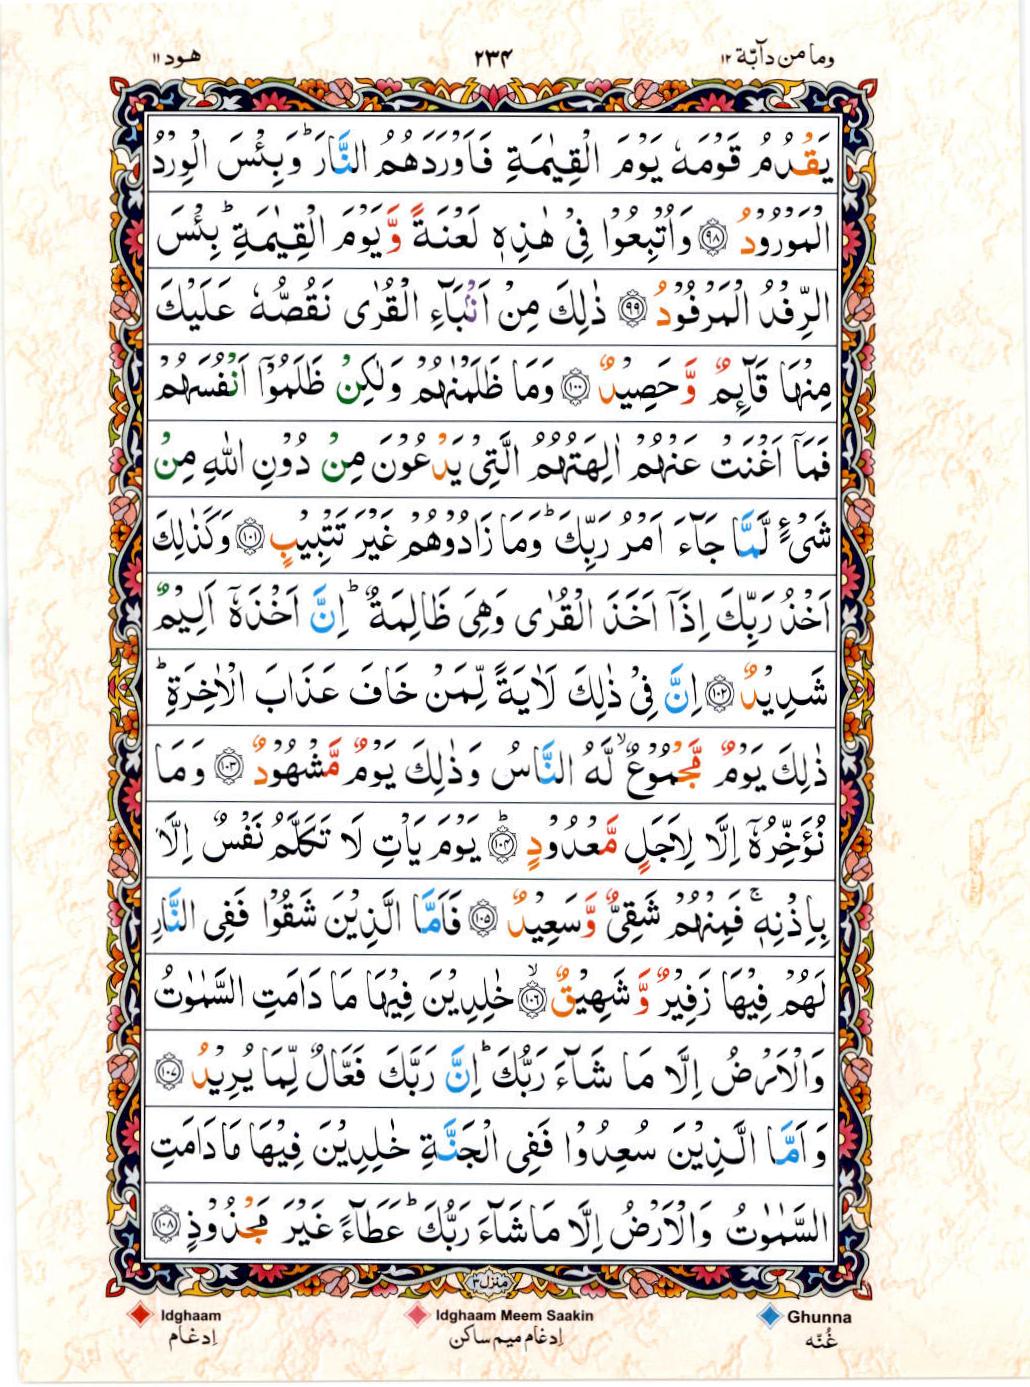 وما من دآبّة ۱۲
۲۳۴
هود ۱۱
يَقْدُمُ قَوْمَهٗ يَوْمَ الْقِيٰمَةِ فَاَوْرَدَهُمُ النَّارَ ؕ وَبِئْسَ الْوِرْدُ
الْمَوْرُوْدُ ﴿۹۸﴾ وَاُتْبِعُوْا فِىْ هٰذِهٖ لَعْنَةً وَّيَوْمَ الْقِيٰمَةِ ؕ بِئْسَ
الرِّفْدُ الْمَرْفُوْدُ ﴿۹۹﴾ ذٰلِكَ مِنْ اَنْۢبَآءِ الْقُرٰى نَقُصُّهٗ عَلَيْكَ
مِنْهَا قَآئِمٌ وَّحَصِيْدٌ ﴿۱۰۰﴾ وَمَا ظَلَمْنٰهُمْ وَلٰكِنْ ظَلَمُوْۤا اَنْفُسَهُمْ
فَمَاۤ اَغْنَتْ عَنْهُمْ اٰلِهَتُهُمُ الَّتِىْ يَدْعُوْنَ مِنْ دُوْنِ اللّٰهِ مِنْ
شَىْءٍ لَّمَّا جَآءَ اَمْرُ رَبِّكَ ؕ وَمَا زَادُوْهُمْ غَيْرَ تَتْبِيْبٍ ﴿۱۰۱﴾ وَكَذٰلِكَ
اَخْذُ رَبِّكَ اِذَاۤ اَخَذَ الْقُرٰى وَهِىَ ظَالِمَةٌ ؕ اِنَّ اَخْذَهٗۤ اَلِيْمٌ
شَدِيْدٌ ﴿۱۰۲﴾ اِنَّ فِىْ ذٰلِكَ لَاٰيَةً لِّمَنْ خَافَ عَذَابَ الْاٰخِرَةِ ؕ
ذٰلِكَ يَوْمٌ مَّجْمُوْعٌ ۙ لَّهُ النَّاسُ وَذٰلِكَ يَوْمٌ مَّشْهُوْدٌ ﴿۱۰۳﴾ وَمَا
نُؤَخِّرُهٗۤ اِلَّا لِاَجَلٍ مَّعْدُوْدٍ ؕ ﴿۱۰۴﴾ يَوْمَ يَاْتِ لَا تَكَلَّمُ نَفْسٌ اِلَّا
بِاِذْنِهٖ ۚ فَمِنْهُمْ شَقِىٌّ وَّسَعِيْدٌ ﴿۱۰۵﴾ فَاَمَّا الَّذِيْنَ شَقُوْا فَفِى النَّارِ
لَهُمْ فِيْهَا زَفِيْرٌ وَّشَهِيْقٌ ۙ ﴿۱۰۶﴾ خٰلِدِيْنَ فِيْهَا مَا دَامَتِ السَّمٰوٰتُ
وَالْاَرْضُ اِلَّا مَا شَآءَ رَبُّكَ ؕ اِنَّ رَبَّكَ فَعَّالٌ لِّمَا يُرِيْدُ ﴿۱۰۷﴾
وَاَمَّا الَّذِيْنَ سُعِدُوْا فَفِى الْجَنَّةِ خٰلِدِيْنَ فِيْهَا مَا دَامَتِ
السَّمٰوٰتُ وَالْاَرْضُ اِلَّا مَا شَآءَ رَبُّكَ ؕ عَطَآءً غَيْرَ مَجْذُوْذٍ ﴿۱۰۸﴾
منزل ۳
Idghaam
Idghaam Meem Saakin
Ghunna
اِدغام
اِدغام میم ساکن
غُنّه